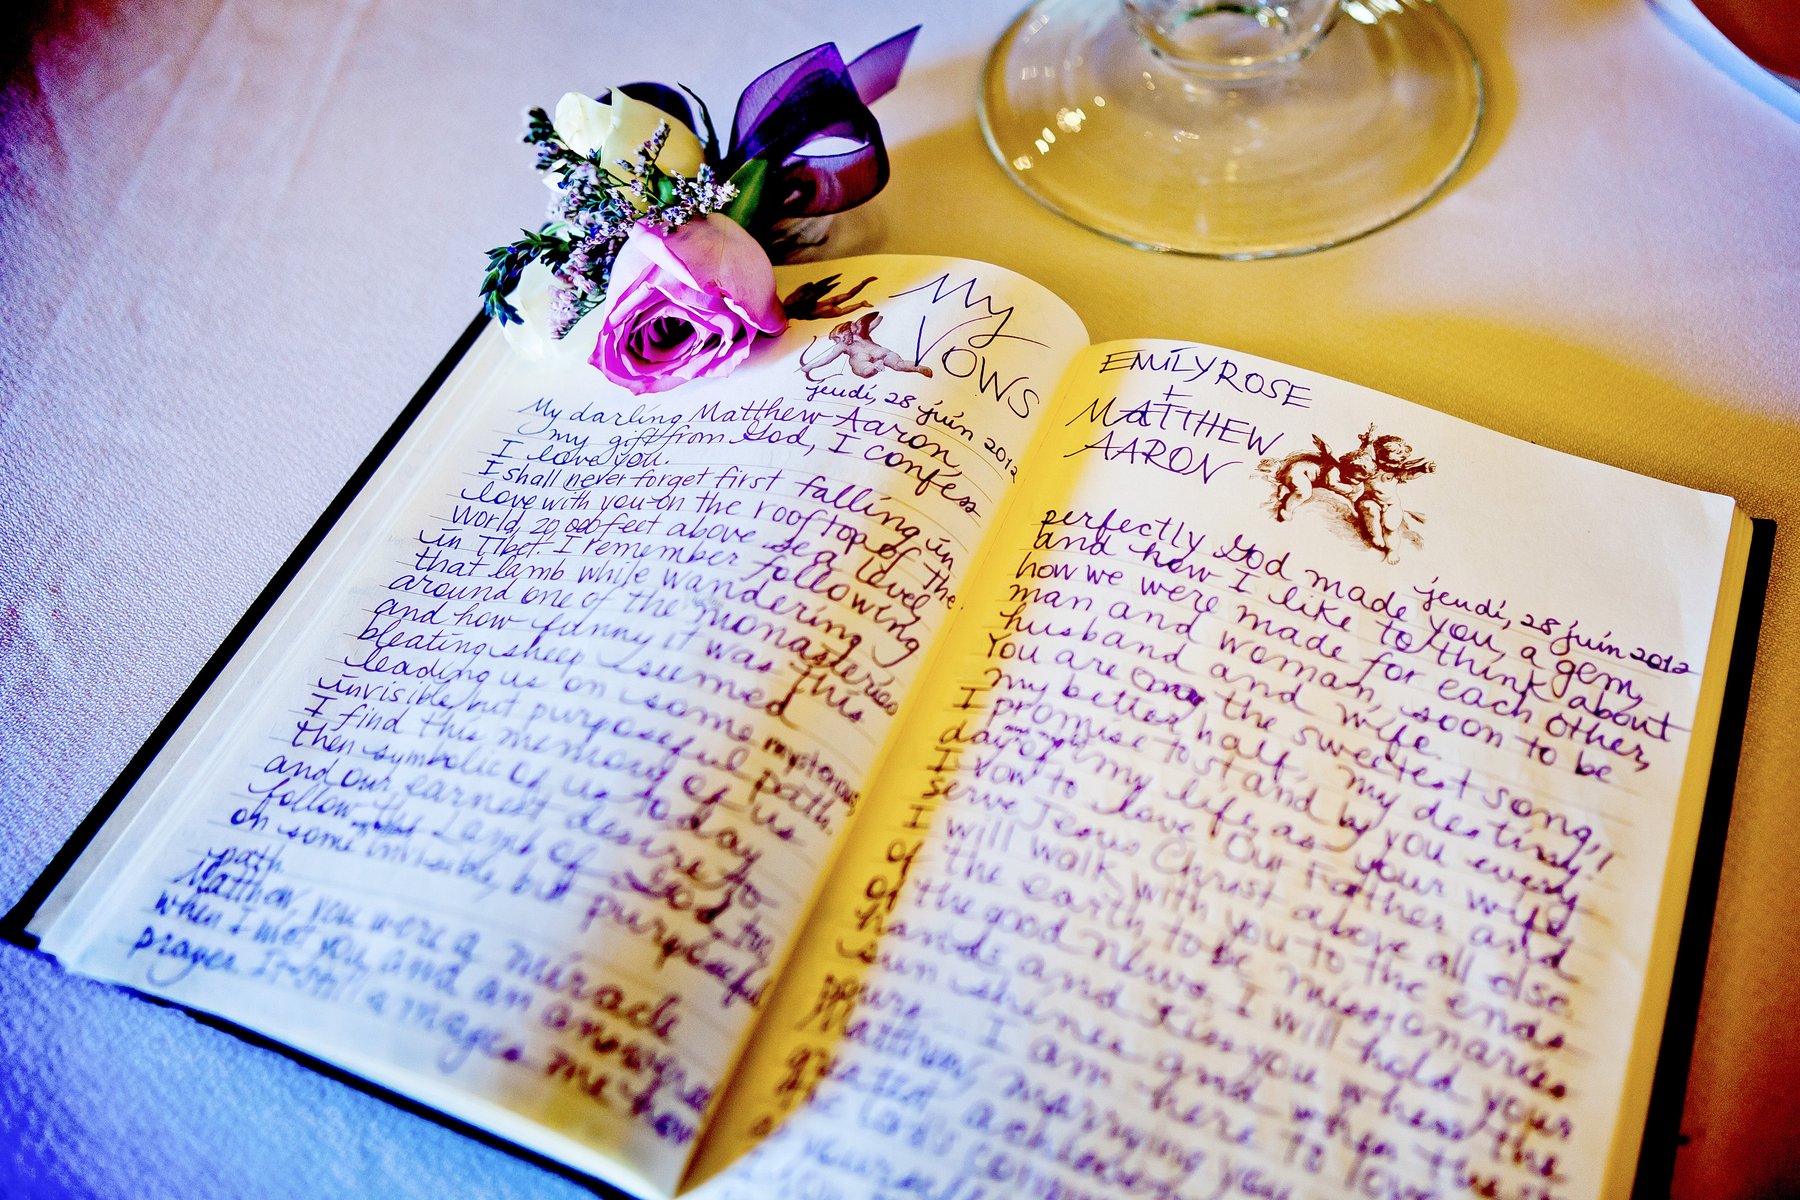 My
Vows
jeudi, 28 juin 2012
My darling Matthew Aaron,
my gift from God, I confess
I love you.
I shall never forget first falling in
love with you on the rooftop of the
world, 20,000 feet above sea level
in Tibet. I remember following
that lamb while wandering
around one of the monasteries
and how funny it was this
bleating sheep seemed
leading us on some mysterious,
invisible, but purposeful path.
I find this memory of us
then symbolic of us today
and our earnest desire to
follow the Lamb of God, too,
on some invisible, but purposeful
path.
Matthew, you were a miracle
when I met you and an answered
prayer. It still amazes me how
EMILY ROSE
+
MATTHEW
AARON
jeudi, 28 juin 2012
perfectly God made you, a gem,
and how I like to think about
how we were made for each other,
man and woman, soon to be
husband and wife.
You are the sweetest song,
my better half, my destiny.
I promise to stand by you every
day of my life, as your wife,
I vow to love Our Father and
serve Jesus Christ above all else.
I will walk with you to the ends
of the earth to be missionaries
of the good news. I will hold your
hands and kiss you when the
sun shines and when
yours. I am here to love
Matthew, marrying you
greatest
the Lord's